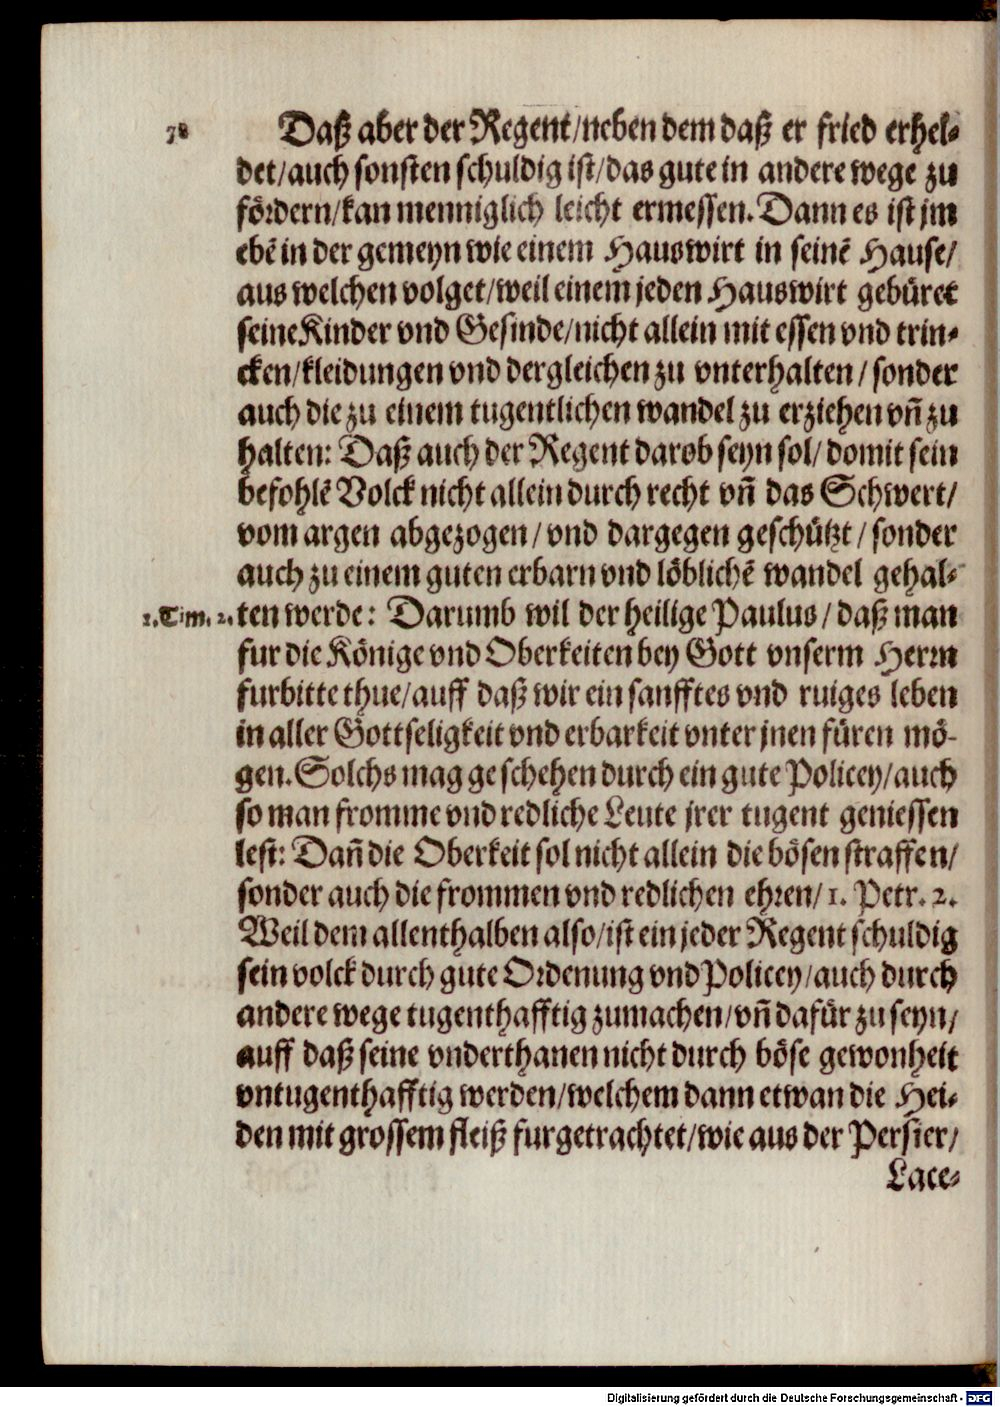 78 Daß aber der Regent/neben dem daß er fried erhel-
det/auch sonsten schuldig ist/das gute in andere wege zu
fördern/kan menniglich leicht ermessen. Dann es ist jm
ebē in der gemeyn wie einem Hauswirt in seinē Hause/
aus welchen volget/weil einem jeden Hauswirt gebüret
seine Kinder vnd Gesinde/nicht allein mit essen vnd trin-
cken/kleidungen vnd dergleichen zu vnterhalten/sonder
auch die zu einem tugentlichen wandel zu erziehen vn̄ zu
halten: Daß auch der Regent darob seyn sol/domit sein
befohlē Volck nicht allein durch recht vn̄ das Schwert/
vom argen abgezogen/vnd dargegen geschützt/sonder
auch zu einem guten erbarn vnd löblichē wandel gehal-
1.Tim. 2. ten werde: Darumb wil der heilige Paulus/daß man
fur die Könige vnd Oberkeiten bey Gott vnserm Herrn
furbitte thue/auff daß wir ein sanfftes vnd ruiges leben
in aller Gottseligkeit vnd erbarkeit vnter jnen füren mö-
gen. Solchs mag geschehen durch ein gute Policey/auch
so man fromme vnd redliche Leute jrer tugent geniessen
lest: Dan̄ die Oberkeit sol nicht allein die bösen straffen/
sonder auch die frommen vnd redlichen ehren/1. Petr. 2.
Weil dem allenthalben also/ist ein jeder Regent schuldig
sein volck durch gute Ordenung vnd Policey/auch durch
andere wege tugenthafftig zumachen/vn̄ dafür zu seyn/
auff daß seine vnderthanen nicht durch böse gewonheit
vntugenthafftig werden/welchem dann etwan die Hei-
den mit grossem fleiß furgetrachtet/wie aus der Persier/
Lace-
Digitalisierung gefördert durch die Deutsche Forschungsgemeinschaft - DFG